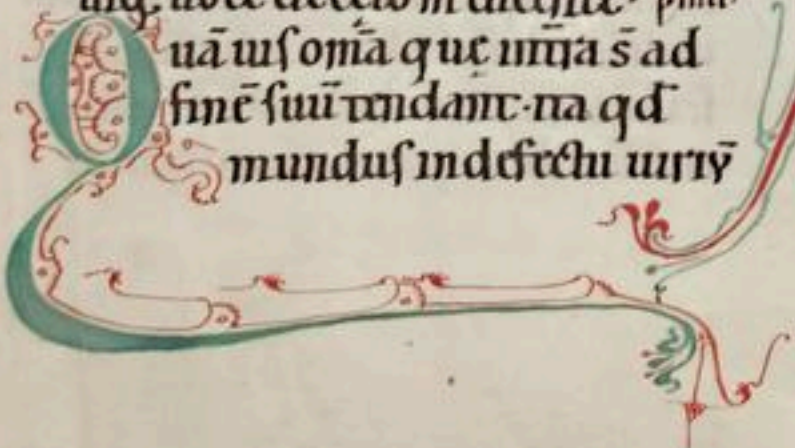 Quā uis om̄a que int̄ra s̄ ad
finē suū tendant · ita qd̄
mundus in defectu uiriū